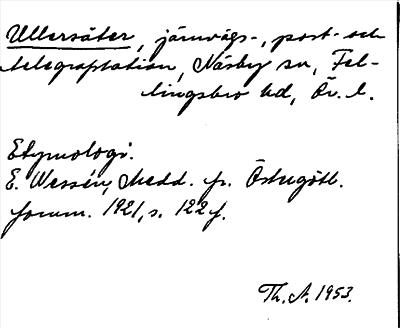 Ullersäter, järnvägs-, post- och
telegrafstation, Näsby sn, Fel-
lingsbro hd, Ör. l.
Etymologi.
E. Wessén, Medd. fr. Östergötl.
fornm. 1921, s. 122 f.
Th. A. 1953.